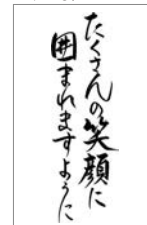 たくさんの笑顔に
囲まれますように